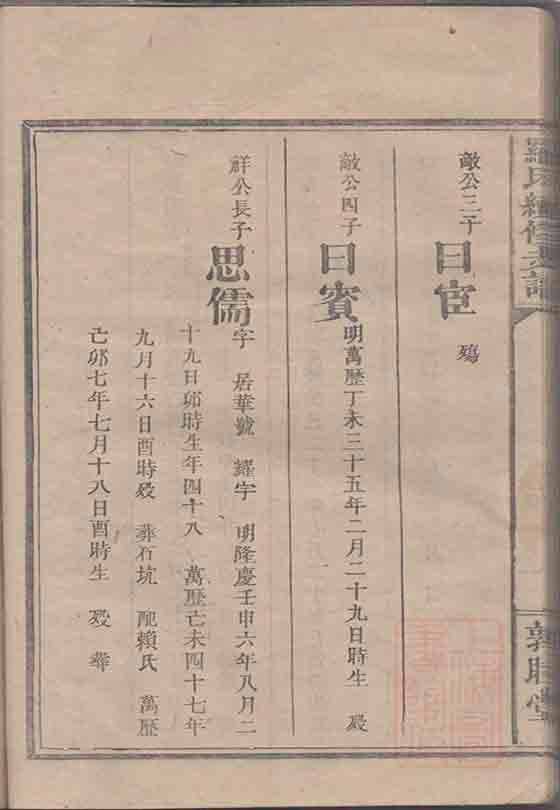 羅氏續修
敵公三子 曰宦 殤
敵公四子 曰賓 明萬歷丁未三十五年二月二十九日時生 歿
祥公長子 思儒 字 居華號 耀宇 明隆慶壬申六年八月二
十九日卯時生年四十八 萬歷己未四十七年
九月十六日酉時歿 葬石坑 配賴氏 萬歷
己卯七年七月十八日酉時生 歿 葬
堂